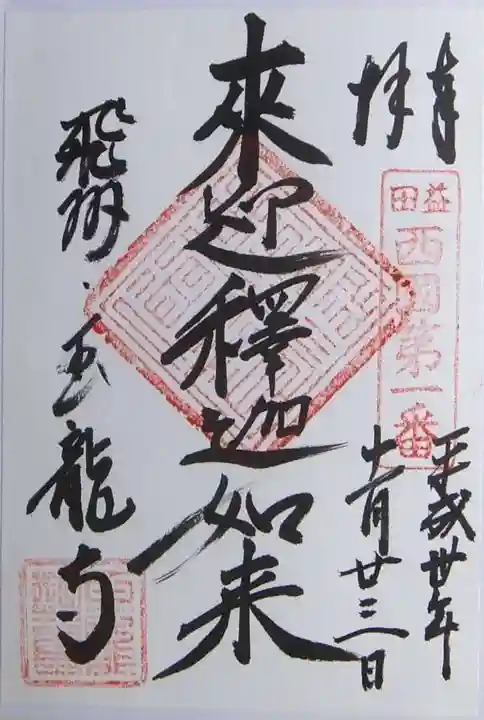 奉拝
益田
西国第一番
平成卅年
十一月廿三日
來迎釋迦如来
飛州・玉龍寺